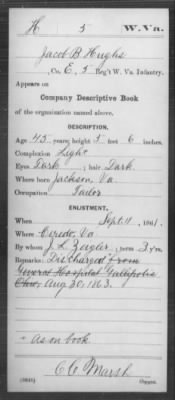 H 5 W. Va.
Jacob B Hughs
, Co. E, 5 Reg't W. Va. Infantry.
Appears on
Company Descriptive Book
of the organization named above.
DESCRIPTION.
Age 45 years; height 5 feet 6 inches.
Complexion Light
Eyes Dark; hair Dark.
Where born Jackson, Va
Occupation Tailor
ENLISTMENT.
When Sept. 11, 1861.
Where Ceredo, Va
By whom J. L. Zeigler; term 3 y'rs.
Remarks: Discharged from
General Hospital Gallipolis
Ohio, Aug 30, 1863.
* As on book
C C Marsh
Copyist.